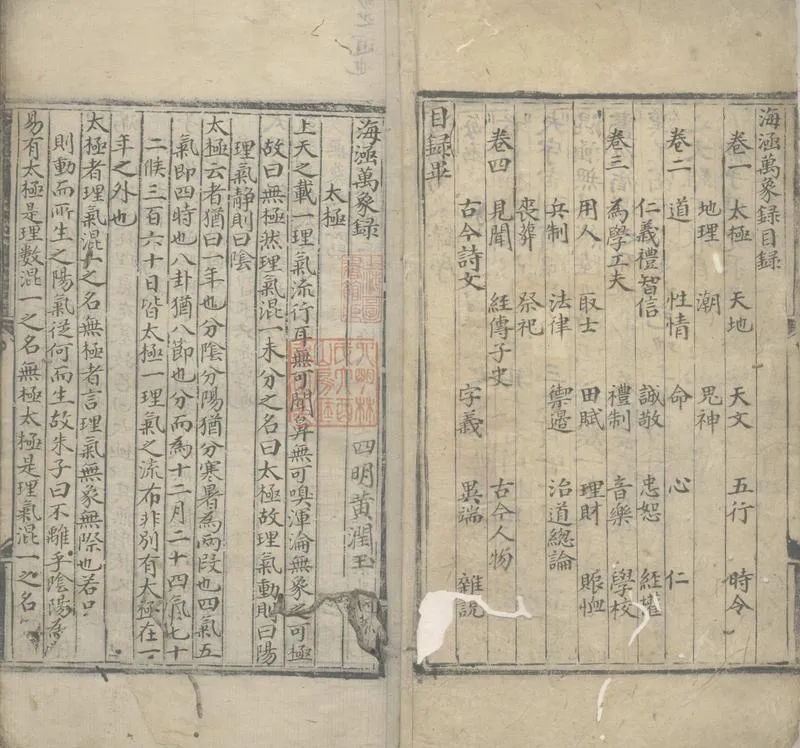 海涵萬象録目録
卷一 太極 天地 天文 五行 時令
地理 潮 鬼神
卷二 道 性情 命 心 仁
仁義禮智信 誠敬 忠恕 經權
卷三 為學工夫 禮制 音樂 學校
用人 取士 田賦 理財 賑恤
兵制 法律 禦邊 治道總論
喪葬 祭祀
卷四 見聞 經傳子史 古今人物
古今詩文 字義 異端 雜説
目録畢
海涵萬象録
四明黃潤玉
太極
上天之載一理氣流行耳無可聞鼻無可嗅渾淪無象之可極
故曰無極然理氣混一未分之名曰太極故理氣動則曰陽
理氣静則曰陰
太極云者猶曰一年也分陰分陽猶分寒暑為兩段也四氣五
氣即四時也八卦猶八節也分而為十二月二十四氣七十
二候三百六十日皆太極一理氣之流布非别有太極在一
年之外也
太極者理氣混一之名無極者言理氣無象無際也若只
則動而所生之陽氣從何而生故朱子曰不離乎陰陽為
易有太極是理數混一之名無極太極是理氣混一之名